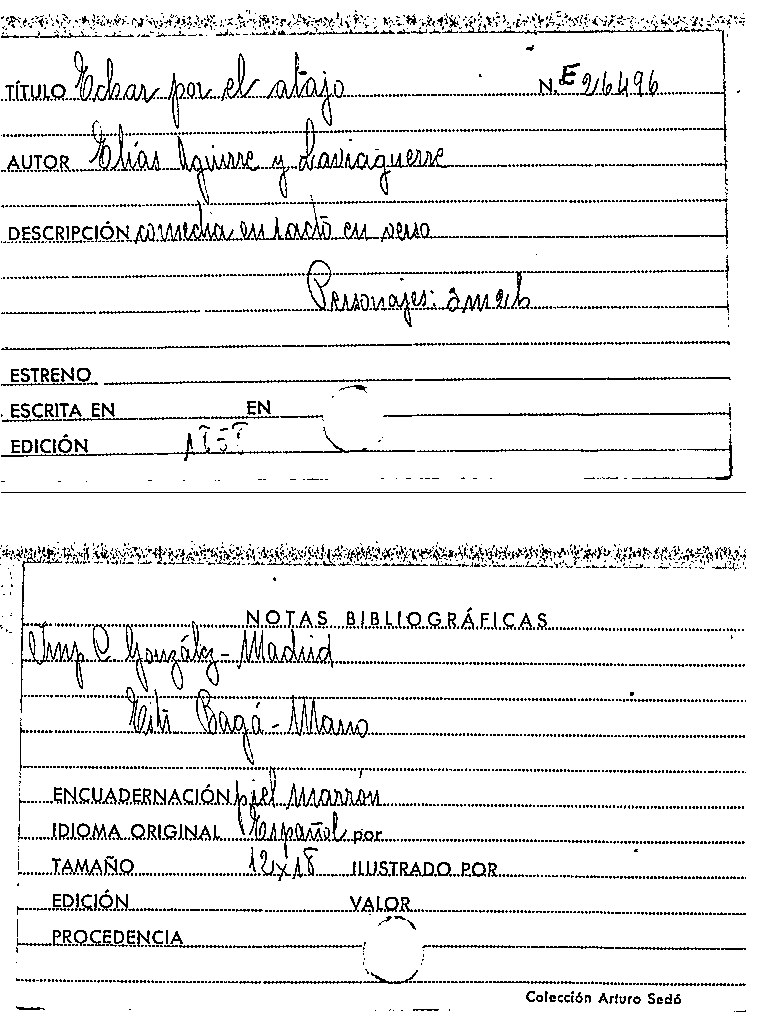 TÍTULO Echar por el atajo N. E 26496
AUTOR Elías Aguirre y Laviaguerre
DESCRIPCIÓN comedia en 1 acto en verso
Personajes: 3m 2h
ESTRENO
ESCRITA EN EN
EDICIÓN
NOTAS BIBLIOGRÁFICAS
Imp C. González - Madrid
Bagá -
ENCUADERNACIÓN piel marrón
IDIOMA ORIGINAL Español por
TAMAÑO 12x18 ILUSTRADO POR
EDICIÓN VALOR
PROCEDENCIA
Colección Arturo Sedó